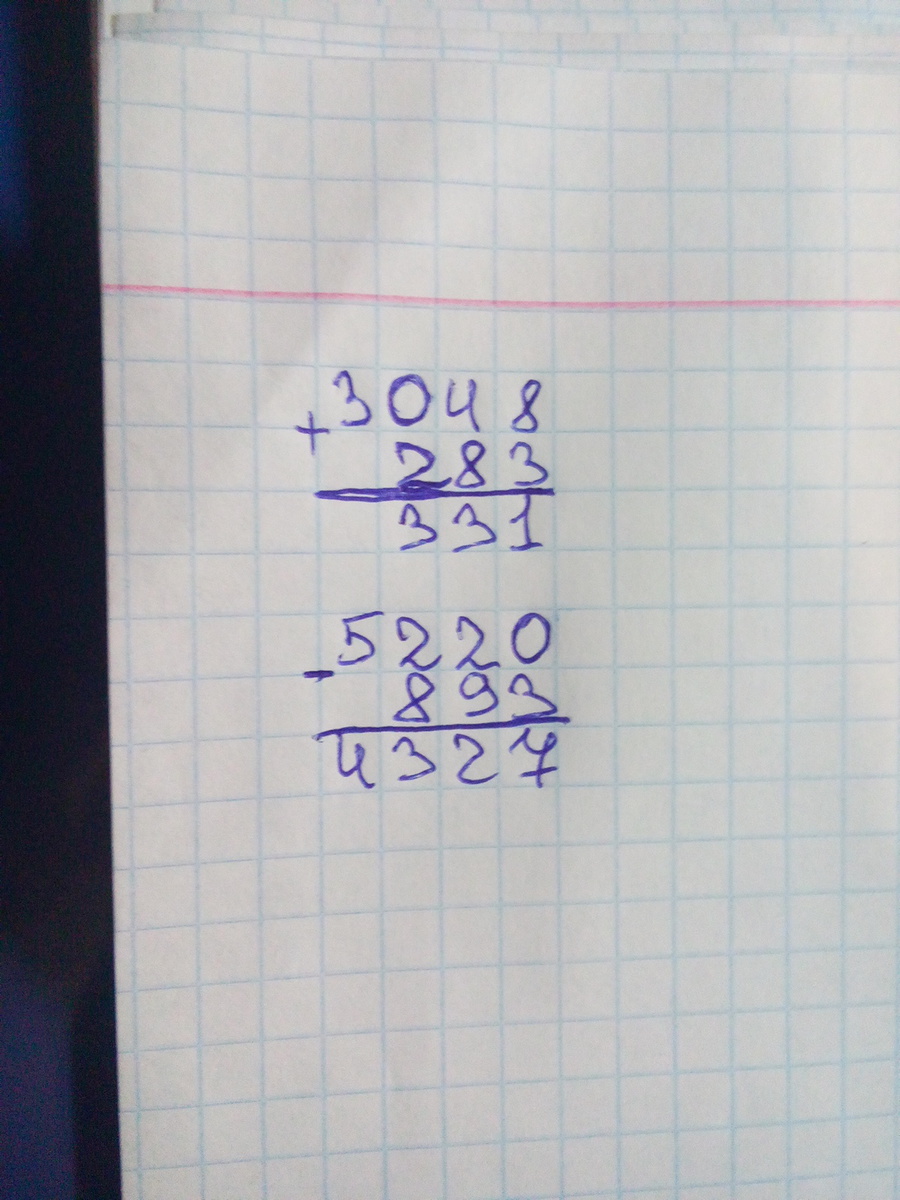 +3048
283
331
-5220
893
4327